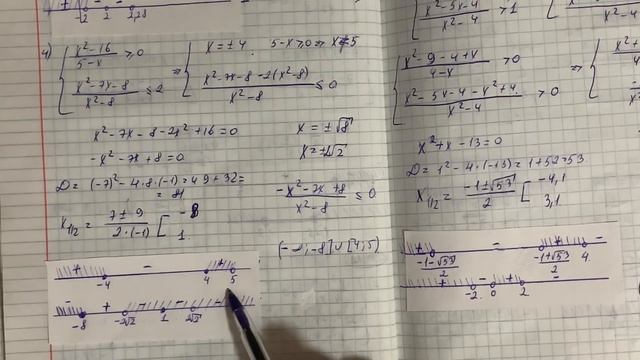 -2 2 2,28
4) { (x²-16)/(5-x) ≥ 0 ⇒ { x = ±4 5-x ≥ 0 ⇒ x ≠ 5
(x²-7x-8)/(x²-8) ≤ 2 (x²-7x-8-2(x²-8))/(x²-8) ≤ 0
x²-7x-8-2x²+16=0 x=±√8
-x²-7x+8=0 x=±2√2
D=(-7)²-4·8·(-1)=49+32=
=81
(-x²-7x+8)/(x²-8) ≤ 0
x1/2 = (7±9)/(2·(-1)) [ -8
1.
+ -4 - 4 + 5
- -8 + -2√2 - 1 + 2√2 -
(x²-5x-4)/(x²-4) > 1
x²-4
{ (x²-9-4+x)/(4-x) > 0
(x²-5x-4-x²+4)/(x²-4) > 0 ⇒ {
x²+x-13=0
D=1²-4·(-13)=1+52=53
x1/2 = (-1±√53)/2 [ -4,1
3,1
+ (-1-√53)/2 - (-1+√53)/2 + 4 -
+ -2 - 0 + 2 -